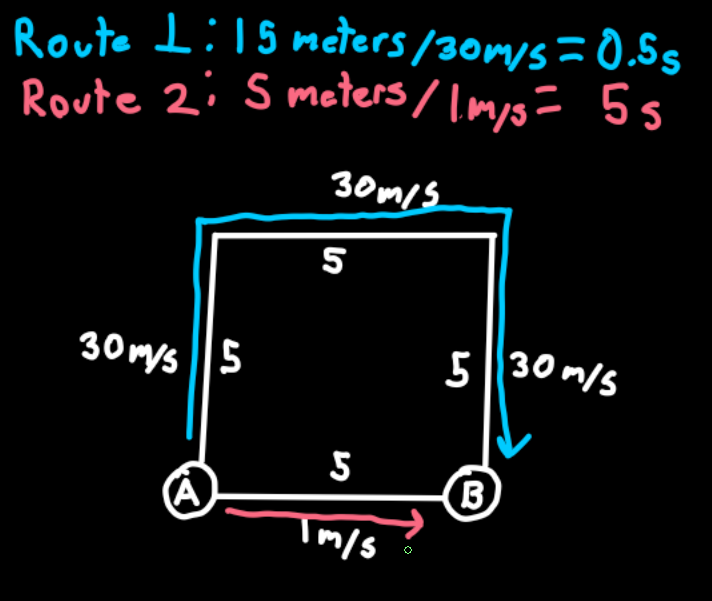 Route 1: 15 meters/30m/s = 0.5s
Route 2: 5 meters/1m/s = 5s
30m/s
5
30m/s
5
5
30m/s
5
A
B
1m/s